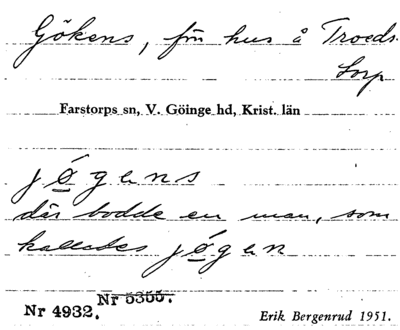 Gökens, fm hus å Troeds-
torp
Farstorps sn, V. Göinge hd, Krist. län
jǿ̲gens
där bodde en man, som
kallades jǿ̲gen
Nr 4932. Nr 5355.
Erik Bergenrud 1951.